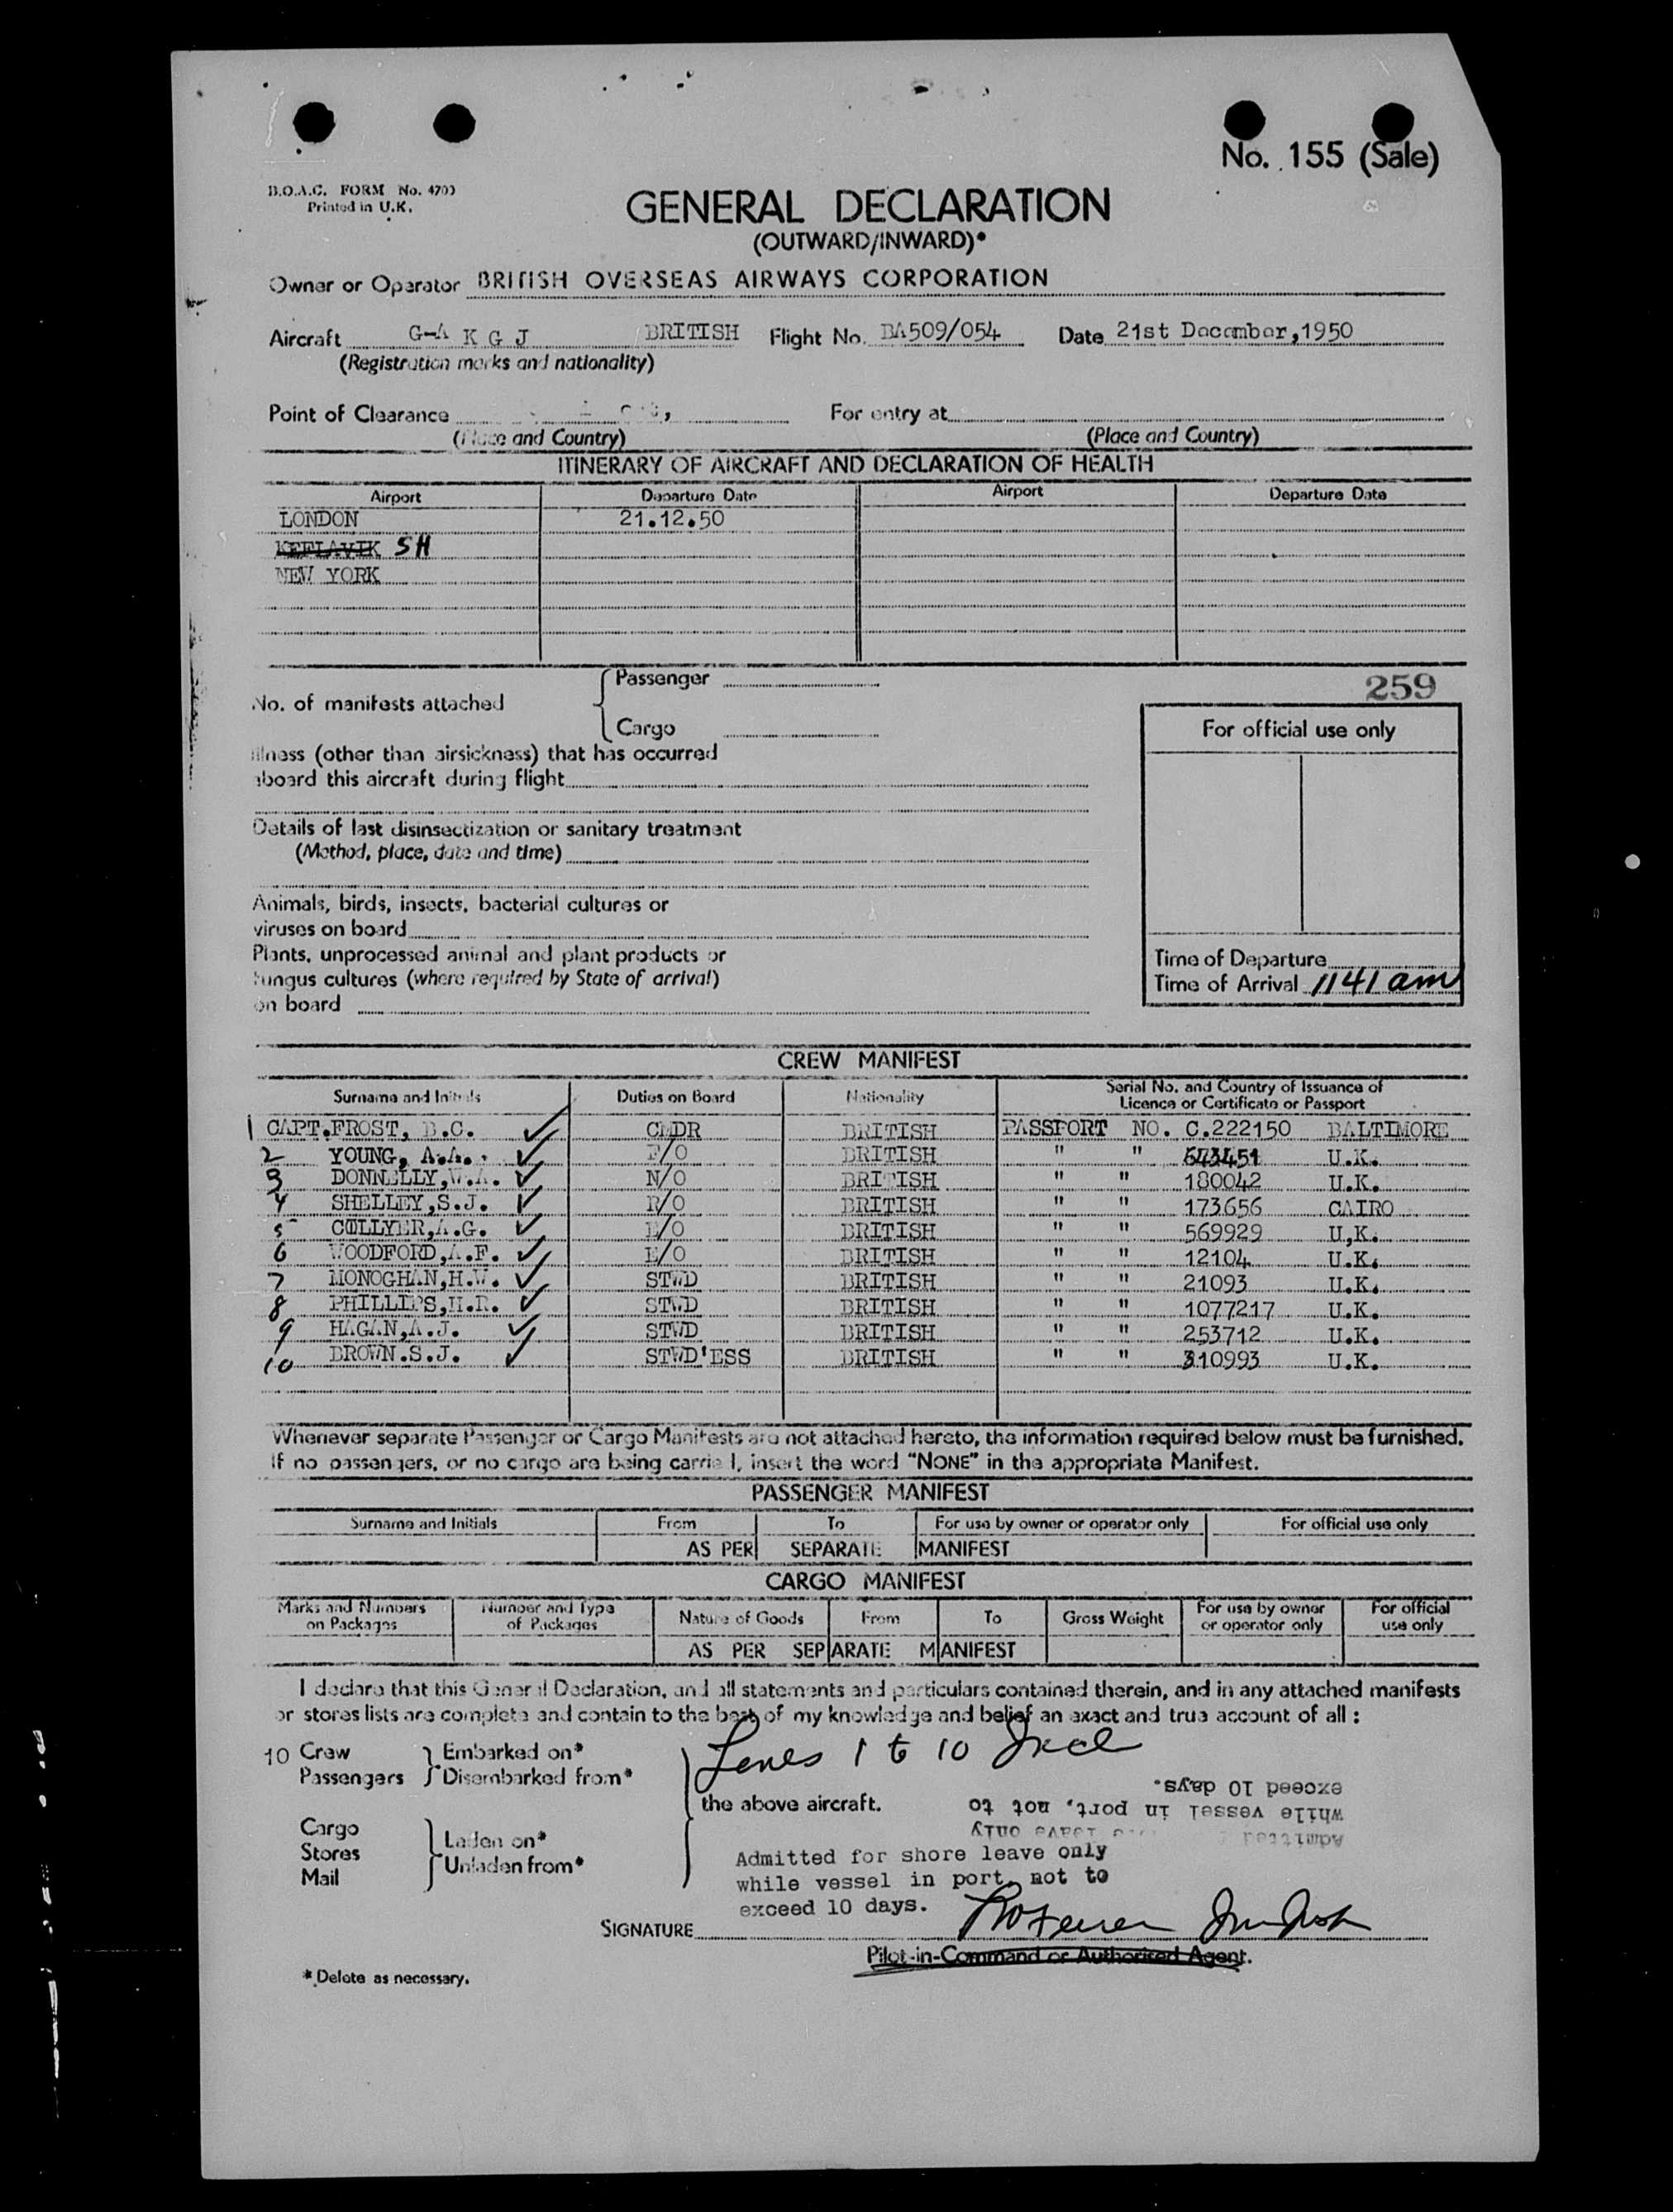 No. 155 (Sale)
B.O.A.C. FORM No. 4703
Printed in U.K.
GENERAL DECLARATION
(OUTWARD/INWARD)*
Owner or Operator BRITISH OVERSEAS AIRWAYS CORPORATION
Aircraft G-A K G J BRITISH Flight No. BA509/054 Date 21st December,1950
(Registration marks and nationality)
Point of Clearance For entry at
(Place and Country) (Place and Country)
ITINERARY OF AIRCRAFT AND DECLARATION OF HEALTH
Airport Departure Date Airport Departure Date
LONDON 21.12.50
KEFLAVIK SH
NEW YORK
Passenger
259
No. of manifests attached
Cargo
For official use only
Illness (other than airsickness) that has occurred
aboard this aircraft during flight
Details of last disinsectization or sanitary treatment
(Method, place, date and time)
Animals, birds, insects, bacterial cultures or
viruses on board
Plants, unprocessed animal and plant products or
fungus cultures (where required by State of arrival)
on board
Time of Departure
Time of Arrival 1141 am
CREW MANIFEST
Surname and Initials Duties on Board Nationality Serial No. and Country of Issuance of
Licence or Certificate or Passport
1 CAPT.FROST, B.C. CMDR BRITISH PASSPORT NO. C.222150 BALTIMORE
2 YOUNG, A.A. F/O BRITISH " " 643451 U.K.
3 DONNELLY,W.A. N/O BRITISH " " 180042 U.K.
4 SHELLEY,S.J. R/O BRITISH " " 173656 CAIRO
5 COLLYER,A.G. E/O BRITISH " " 569929 U,K.
6 WOODFORD,A.F. E/O BRITISH " " 12104 U.K.
7 MONOGHAN,H.W. STWD BRITISH " " 21093 U.K.
8 PHILLIPS,H.R. STWD BRITISH " " 1077217 U.K.
9 HAGAN,A.J. STWD BRITISH " " 253712 U.K.
10 BROWN.S.J. STWD'ESS BRITISH " " 310993 U.K.
Whenever separate Passenger or Cargo Manifests are not attached hereto, the information required below must be furnished.
If no passengers, or no cargo are being carried, insert the word "NONE" in the appropriate Manifest.
PASSENGER MANIFEST
Surname and Initials From To For use by owner or operator only For official use only
AS PER SEPARATE MANIFEST
CARGO MANIFEST
Marks and Numbers on Packages Number and Type of Packages Nature of Goods From To Gross Weight For use by owner or operator only For official use only
AS PER SEPARATE MANIFEST
I declare that this General Declaration, and all statements and particulars contained therein, and in any attached manifests
or stores lists are complete and contain to the best of my knowledge and belief an exact and true account of all :
Lines 1 to 10 Incl
10 Crew Embarked on*
Passengers Disembarked from*
the above aircraft.
Admitted leave only
while vessel in port, not to
exceed 10 days.
Cargo
Stores
Mail
Laden on*
Unladen from*
Admitted for shore leave only
while vessel in port, not to
exceed 10 days.
SIGNATURE
Pilot-in-Command or Authorised Agent.
* Delete as necessary.